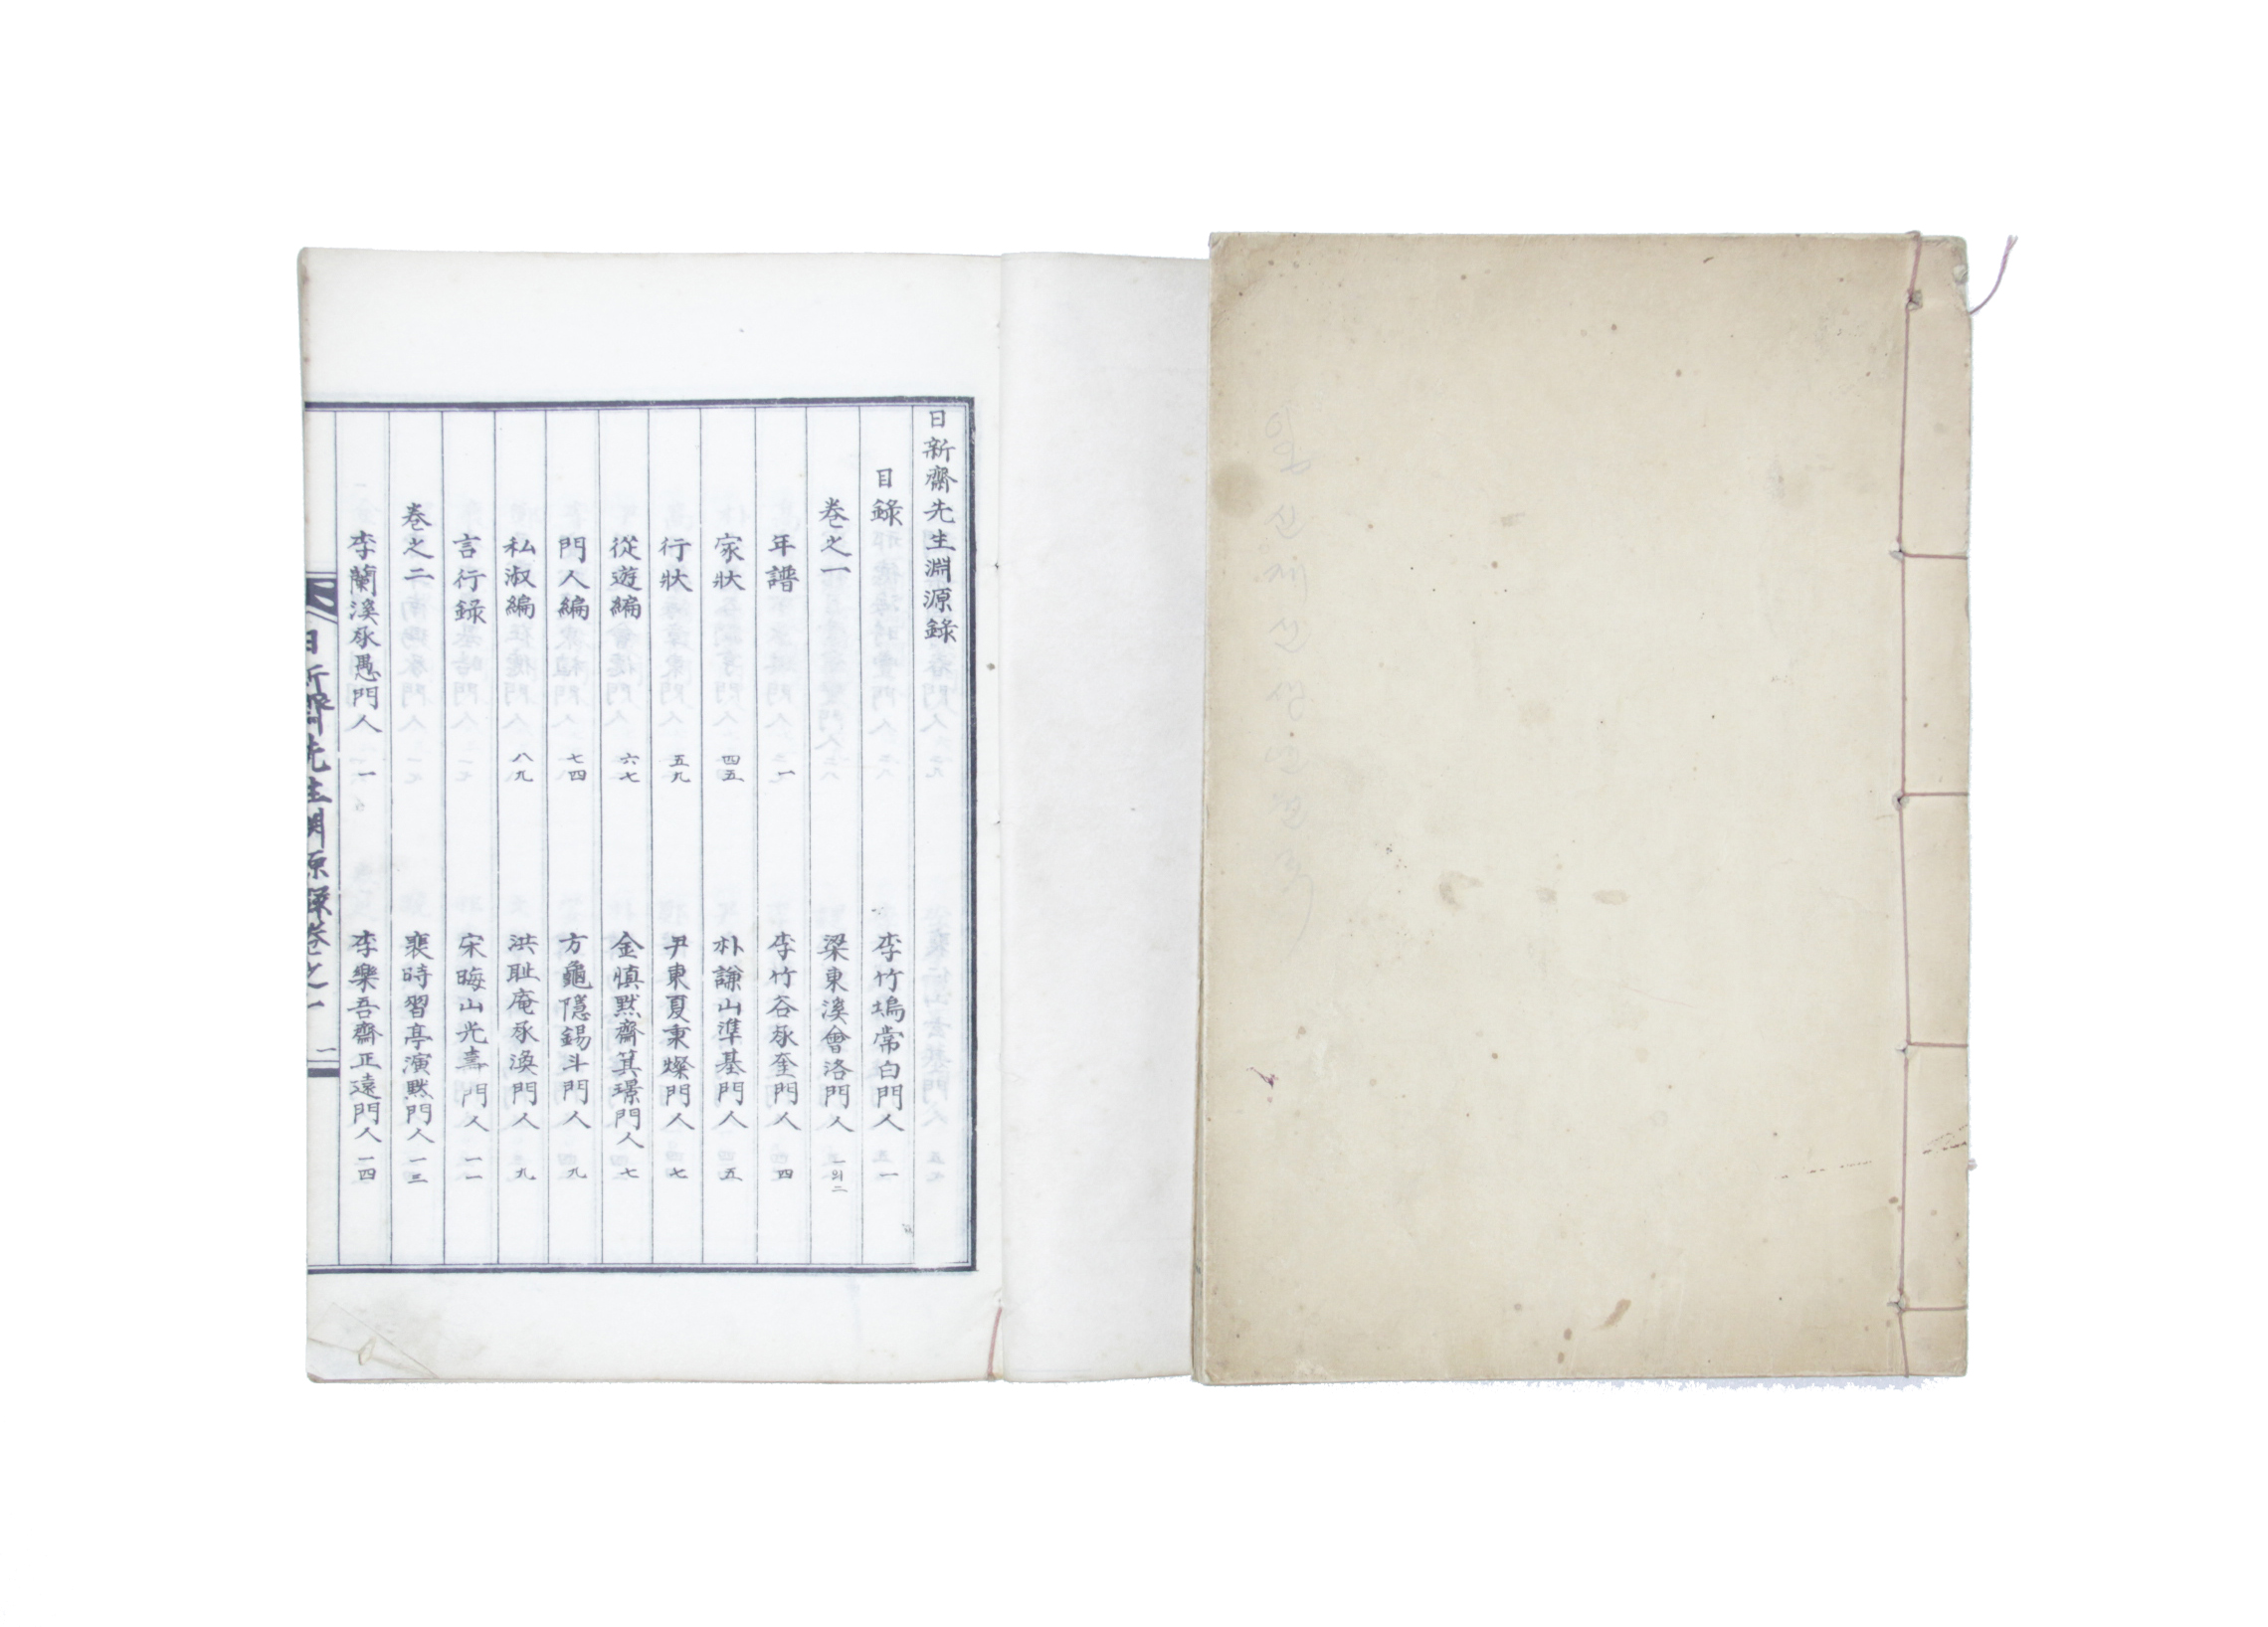 일신재선생연원록
日新齋先生淵源錄
目錄
卷之一
年譜 一
家狀 四五
行狀 五九
從遊編 六七
門人編 七四
私淑編 八九
言行錄
卷之二
李蘭溪承愚門人 一
李竹塢常白門人 一
梁東溪會洛門人 一의二
李竹谷承奎門人 四
朴謙山準基門人 五
尹東夏秉燦門人 七
金愼默齋箕璟門人 七
方龜隱錫斗門人 九
洪耻庵承渙門人 九
宋晦山光憙門人 一一
裵時習亭演默門人 一三
李樂吾齋正遠門人 一四
日新齋先生淵源錄卷之一
一